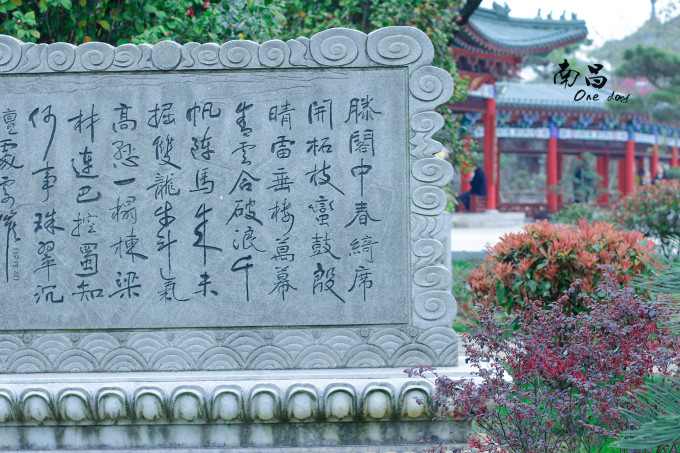 滕閣中春綺席
開柘枝蠻鼓殷
晴雷垂樓萬幕
青雲合破浪千
帆陣馬來未
掘雙龍牛斗氣
高懸一榻棟梁
材連巴控蜀知
何事珠翠沉
檀處處堆
南昌
One dool